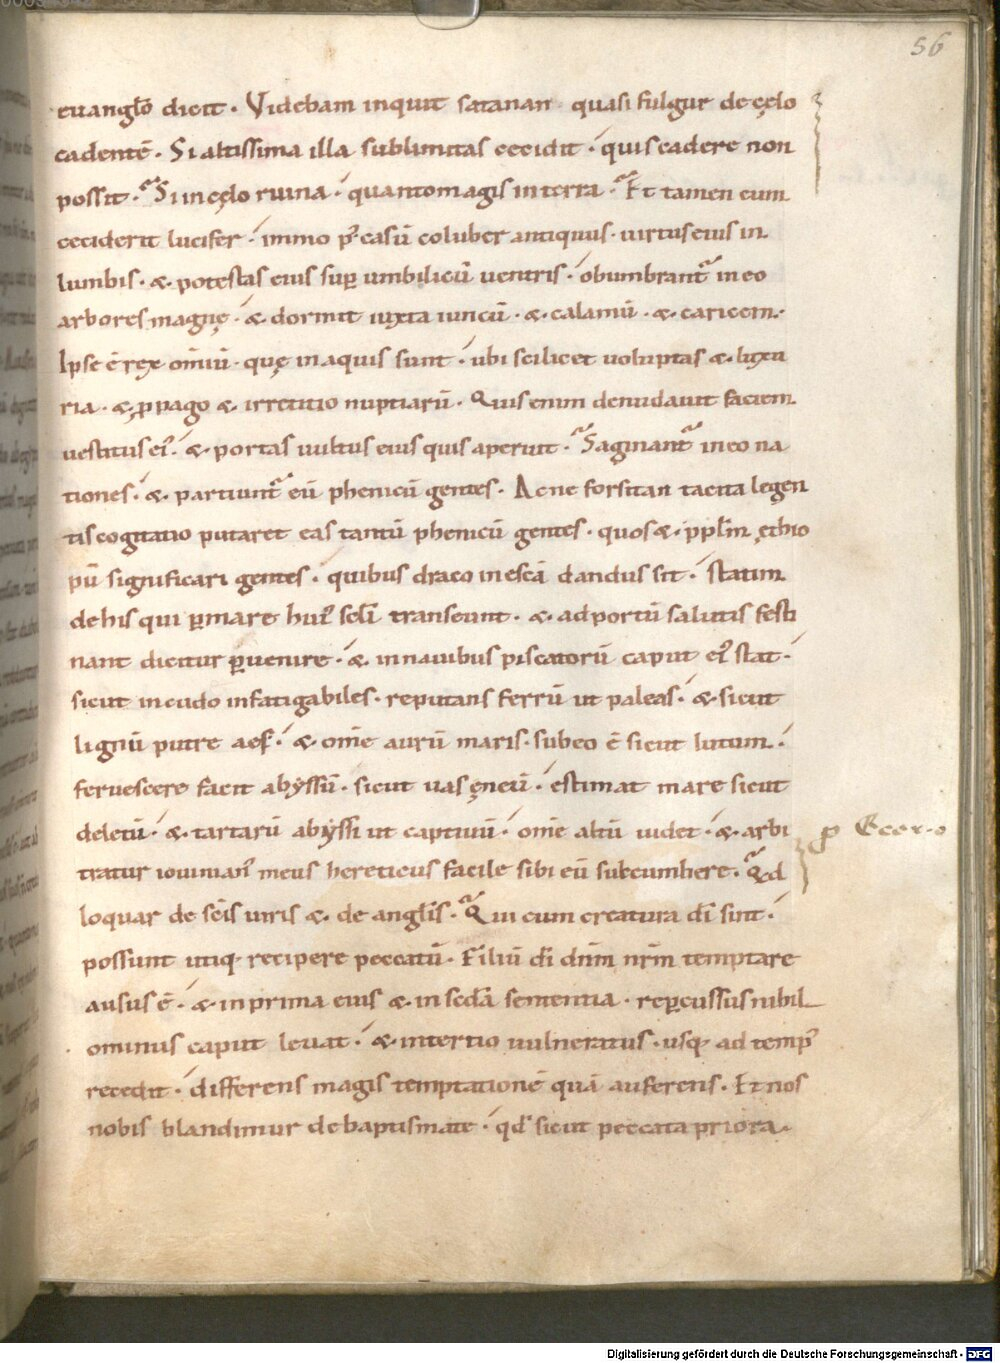 56
euanglo dicit. Videbam inquit satanan quasi fulgur de cęlo
cadentē. Si altissima illa sublimitas cecidit. quis cadere non
possit. Si in cęlo ruina. quanto magis in terra. Et tamen cum
ceciderit lucifer. immo p casū coluber antiquus. uirtus eius in
lumbis. & potestas eius sup umbilicū uentris. obumbrant in eo
arbores magnę. & dormit iuxta iuncū. & calamū. & caricem.
Ipse ē rex omiū. quę in aquis sunt. ubi scilicet uoluptas & luxu
ria. & ppago & irretitio nuptiarū. Quis enim denudauit faciem
uestitus ei. & portas uultus eius quis aperuit. Saginant in eo na
tiones. & partiunt eū phenicū gentes. Ac ne forsitan tacita legen
tis cogitatio putaret eas tantū phenicū gentes. quos & pplm ęthio
pū significari gentes. quibus draco in escā dandus sit. statim
de his qui p mare hui scli transeunt. & ad portū salutis festi
nant dicitur puenire. & in nauibus piscatorū caput ei stat.
sicut incudo infatigabiles. reputans ferrū ut paleas. & sicut
lignū putre aes. & ome aurū maris. sub eo ē sicut lutum.
feruescere facit abyssū. sicut uas ęneū. estimat mare sicut
deletū. & tartarū abyssi ut captiuū. ome altū uidet. & arbi
p &cer.o
tratur iouinian meus hereticus facile sibi eū subcumbere. Qd
loquar de scis uiris & de anglis. Qui cum creatura di sint.
possunt utiq recipere peccatū. Filiū di dnm nrm temptare
ausus ē. & in prima eius & in scda sententia. repcussus nihil
ominus caput leuat. & in tertio uulneratus. usq ad temp
recedit. differens magis temptationē quā auferens. Et nos
nobis blandimur de baptismate. qd sicut peccata priora
Digitalisierung gefördert durch die Deutsche Forschungsgemeinschaft - DFG